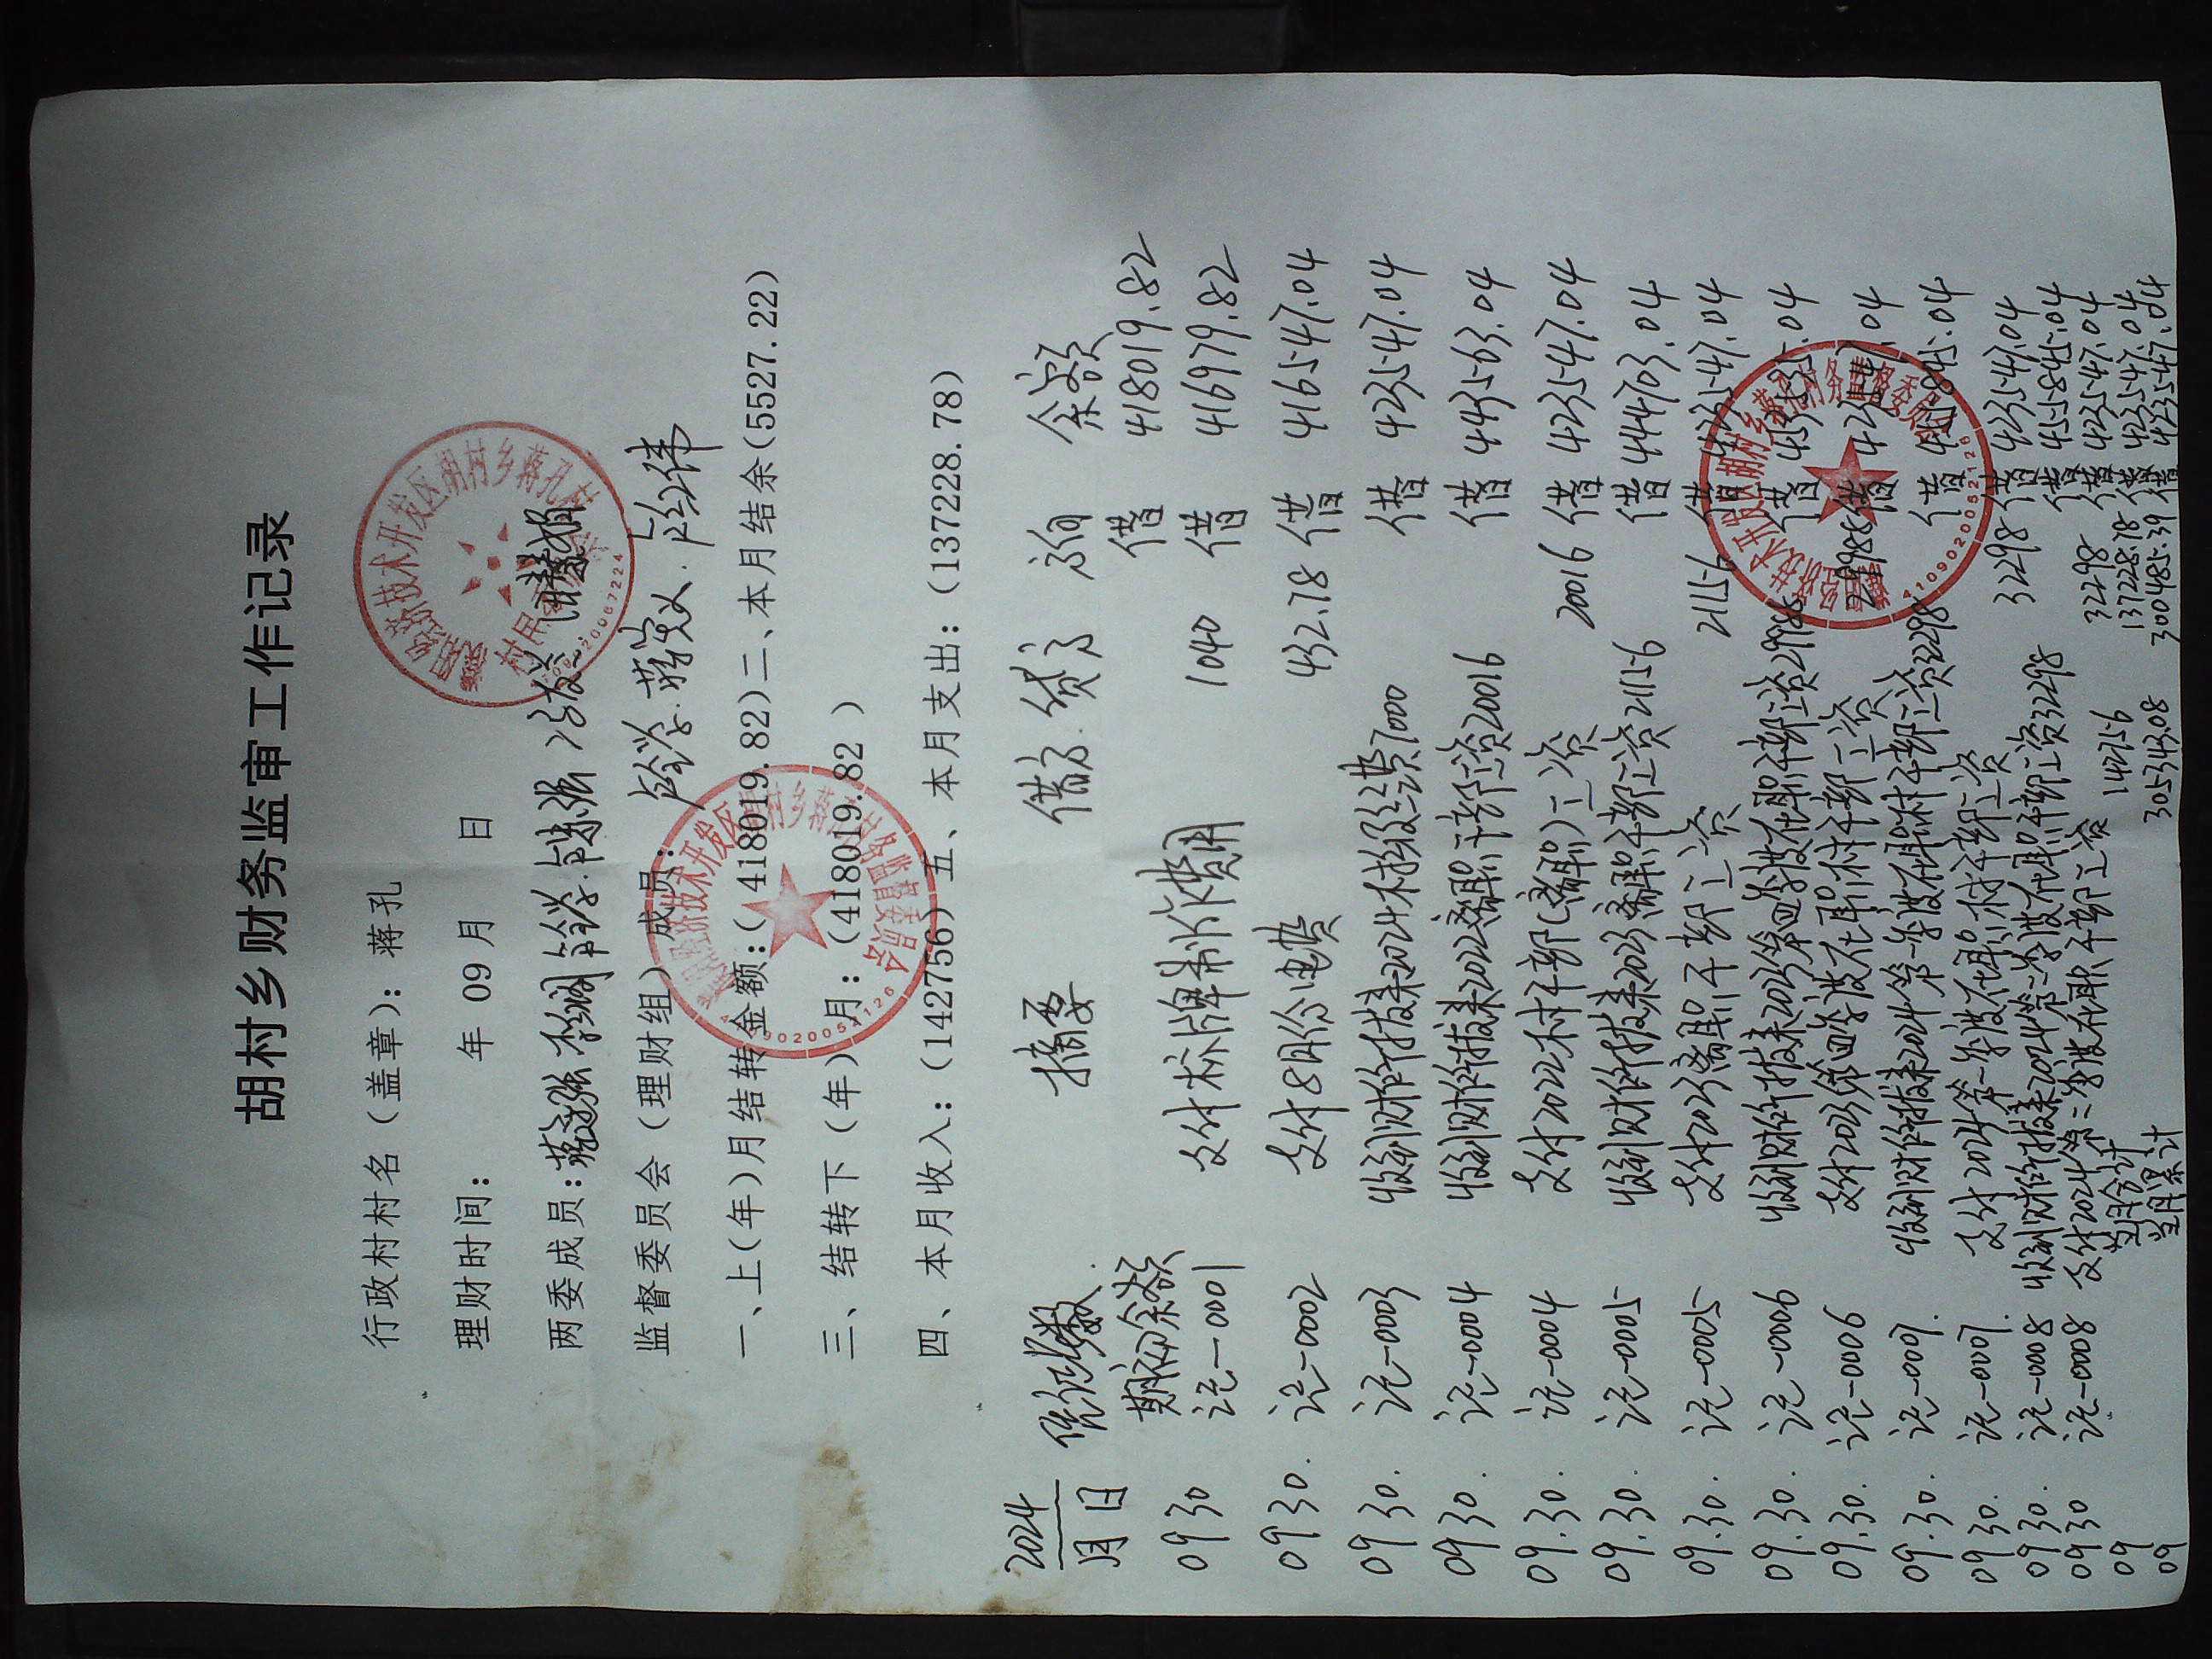 胡村乡财务监审工作记录
行政村村名（盖章）：蒋孔
理财时间：　　年 09 月　　日
两委成员：
监督委员会（理财组）成员：
一、上(年)月结转金额：(418019.82)二、本月结余(5527.22)
三、结转下（年）月：（418019.82 ）
四、本月收入：(142756) 五、本月支出：(137228.78)
2024
月 日 凭证号数 摘要 借方 贷方 方向 余额
期初余额 借 418019.82
09 30 记-0001 支付标牌制作费用 1040 借 416979.82
09 30. 记-0002 支付8月份电费 432.78 借 416547.04
09 30. 记-0003 收到财所拨来2024村级经费7000 借 423547.04
09 30. 记-0004 收到财所拨来2022离职干部工资20016 借 443563.04
09.30. 记-0004 支付2022村干部(离职)工资 20016 借 423547.04
09.30. 记-0005 收到财所拨来2023离职干部工资21156 借 444703.04
09.30. 记-0005 支付2023离职干部工资 21156 借 423547.04
09.30. 记-0006 收到财所拨来2023第四季度在职干部工资29988 借 453535.04
09.30. 记-0006 支付2023第四季度在职村干部工资 29988 借 423547.04
09.30. 记-0007. 收到财所拨来2024第一季度在职村干部工资32298 借 455845.04
09 30. 记-0007. 支付2024第一季度在职村干部工资 32298 借 423547.04
09 30. 记-0008 收到财所拨来2024第二季度在职干部工资32298 借 455845.04
09 30 记-0008 支付2024第二季度在职干部工资 32298 借 423547.04
09 当月合计 142756 137228.78 借 423547.04
09 当月累计 305343.08 300485.39 借 423547.04